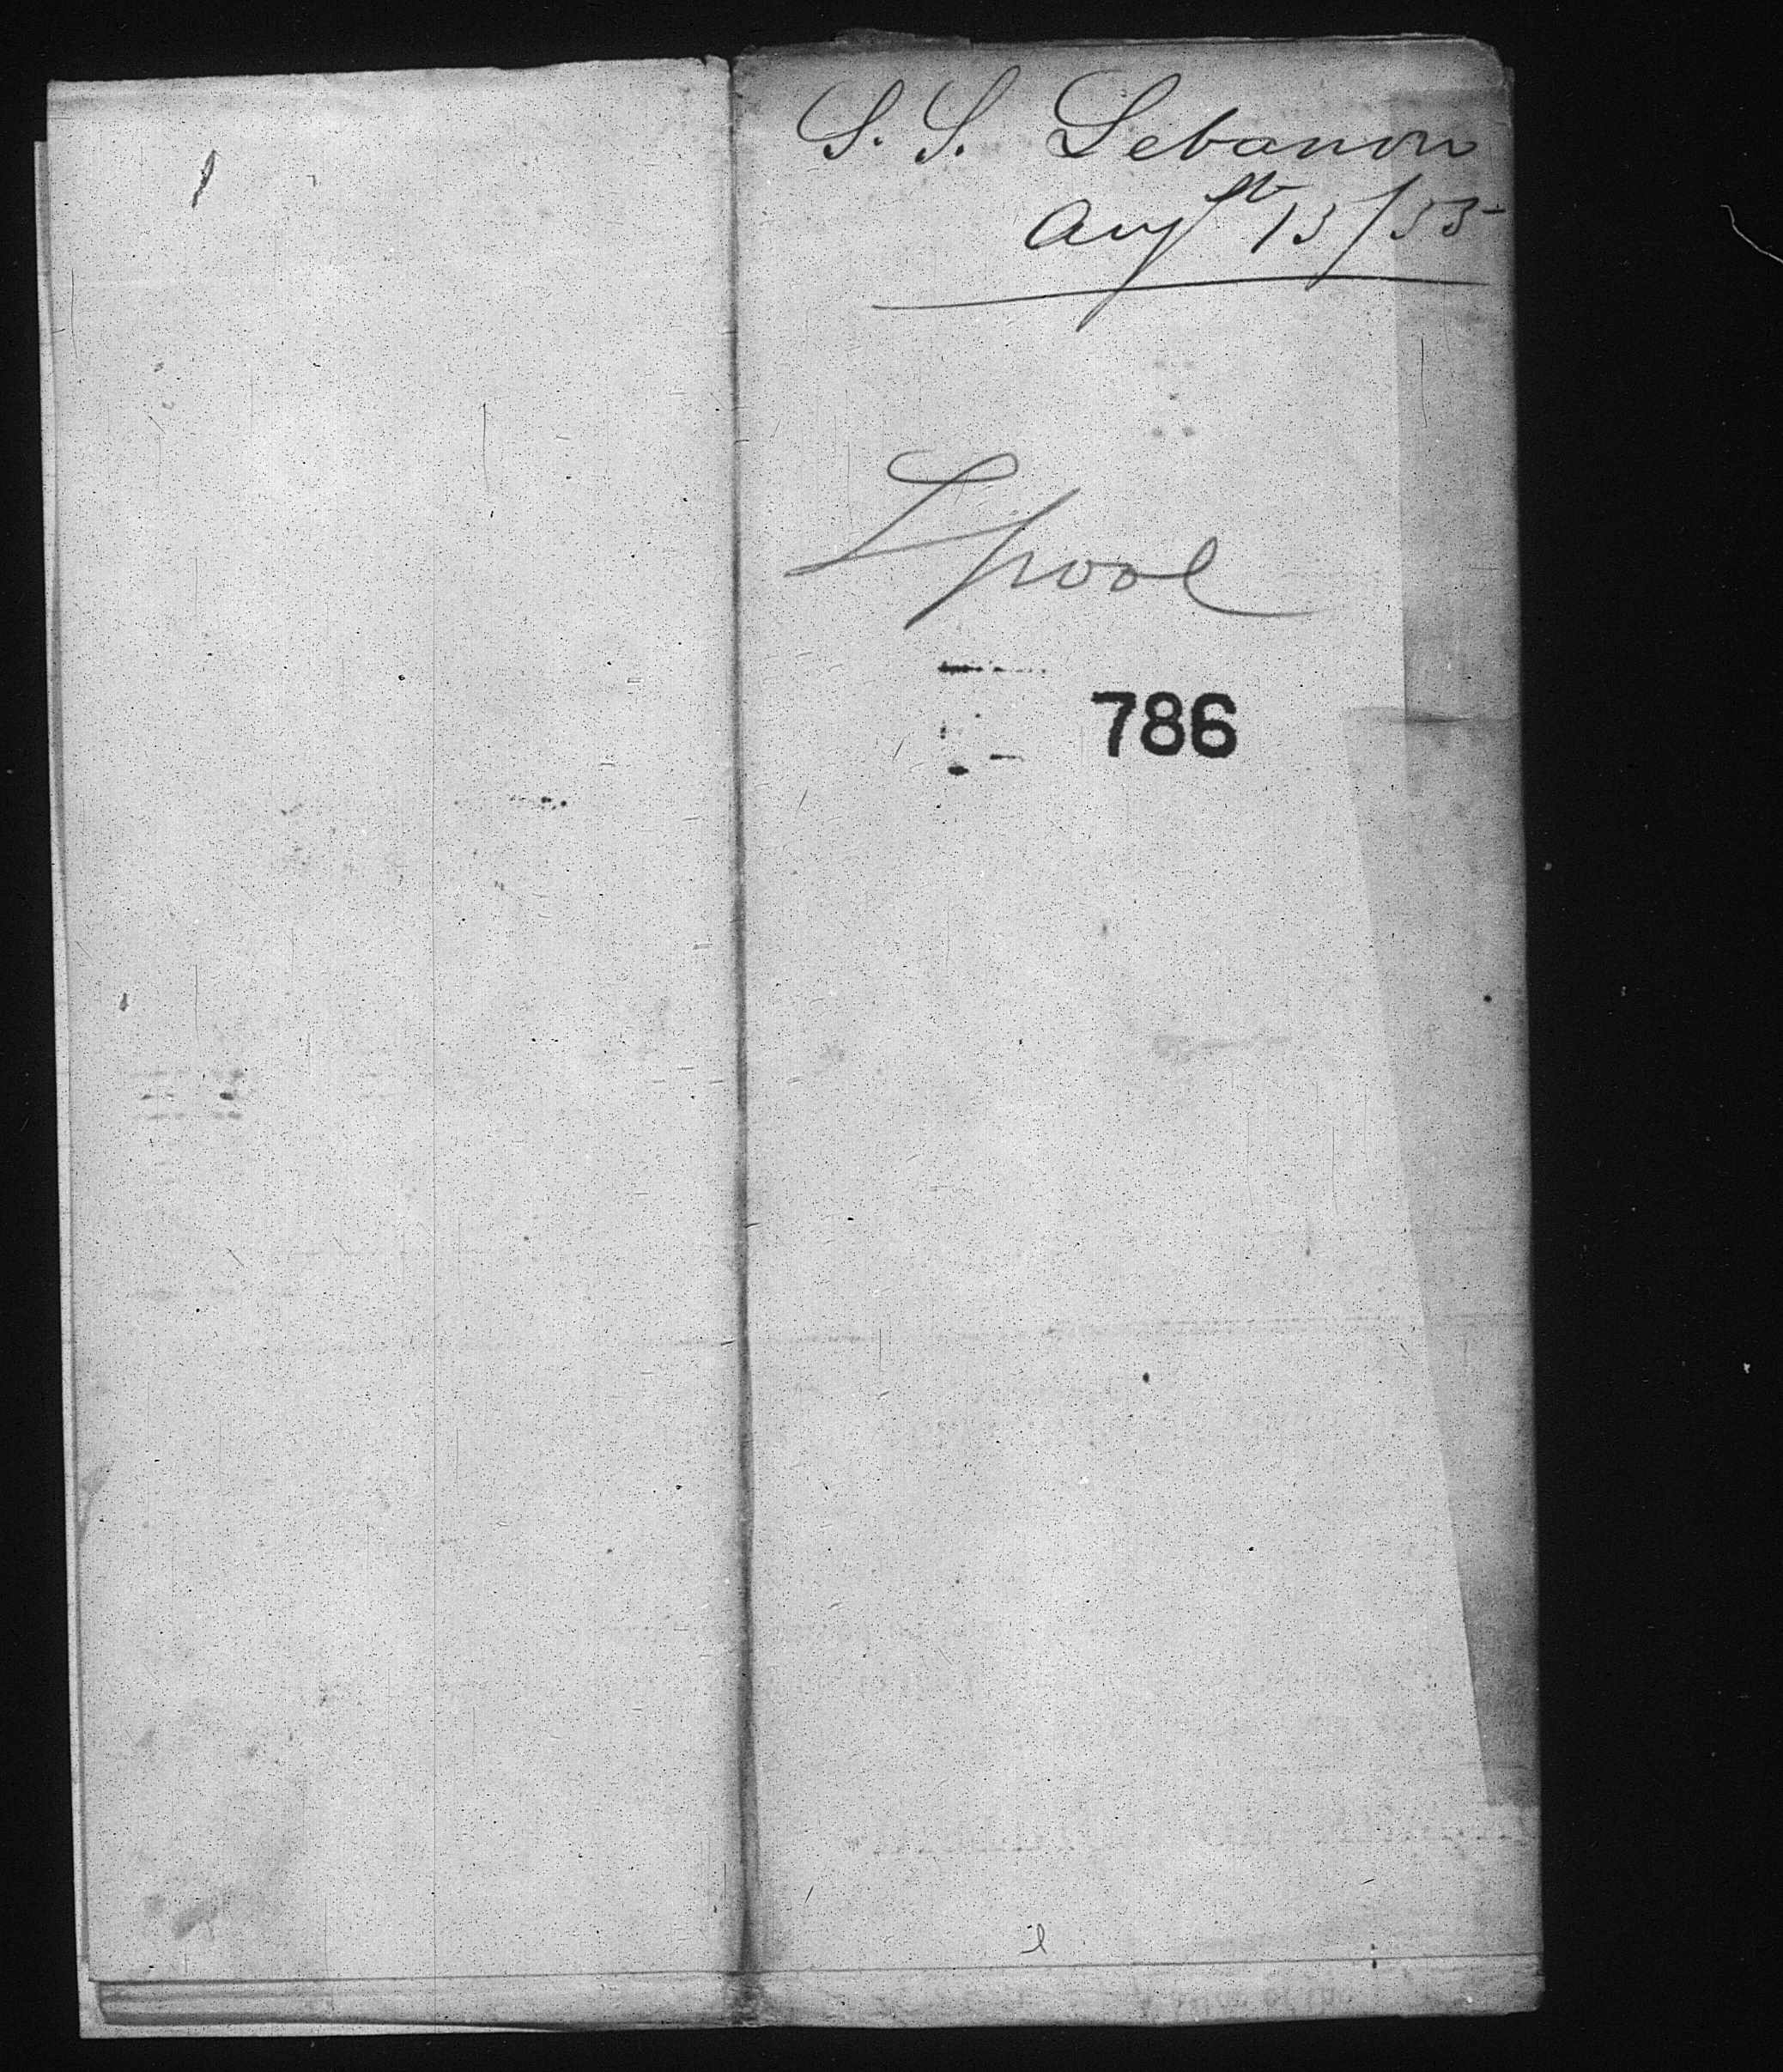 S. S. Lebanon
Augst 13/55
Lpool
786